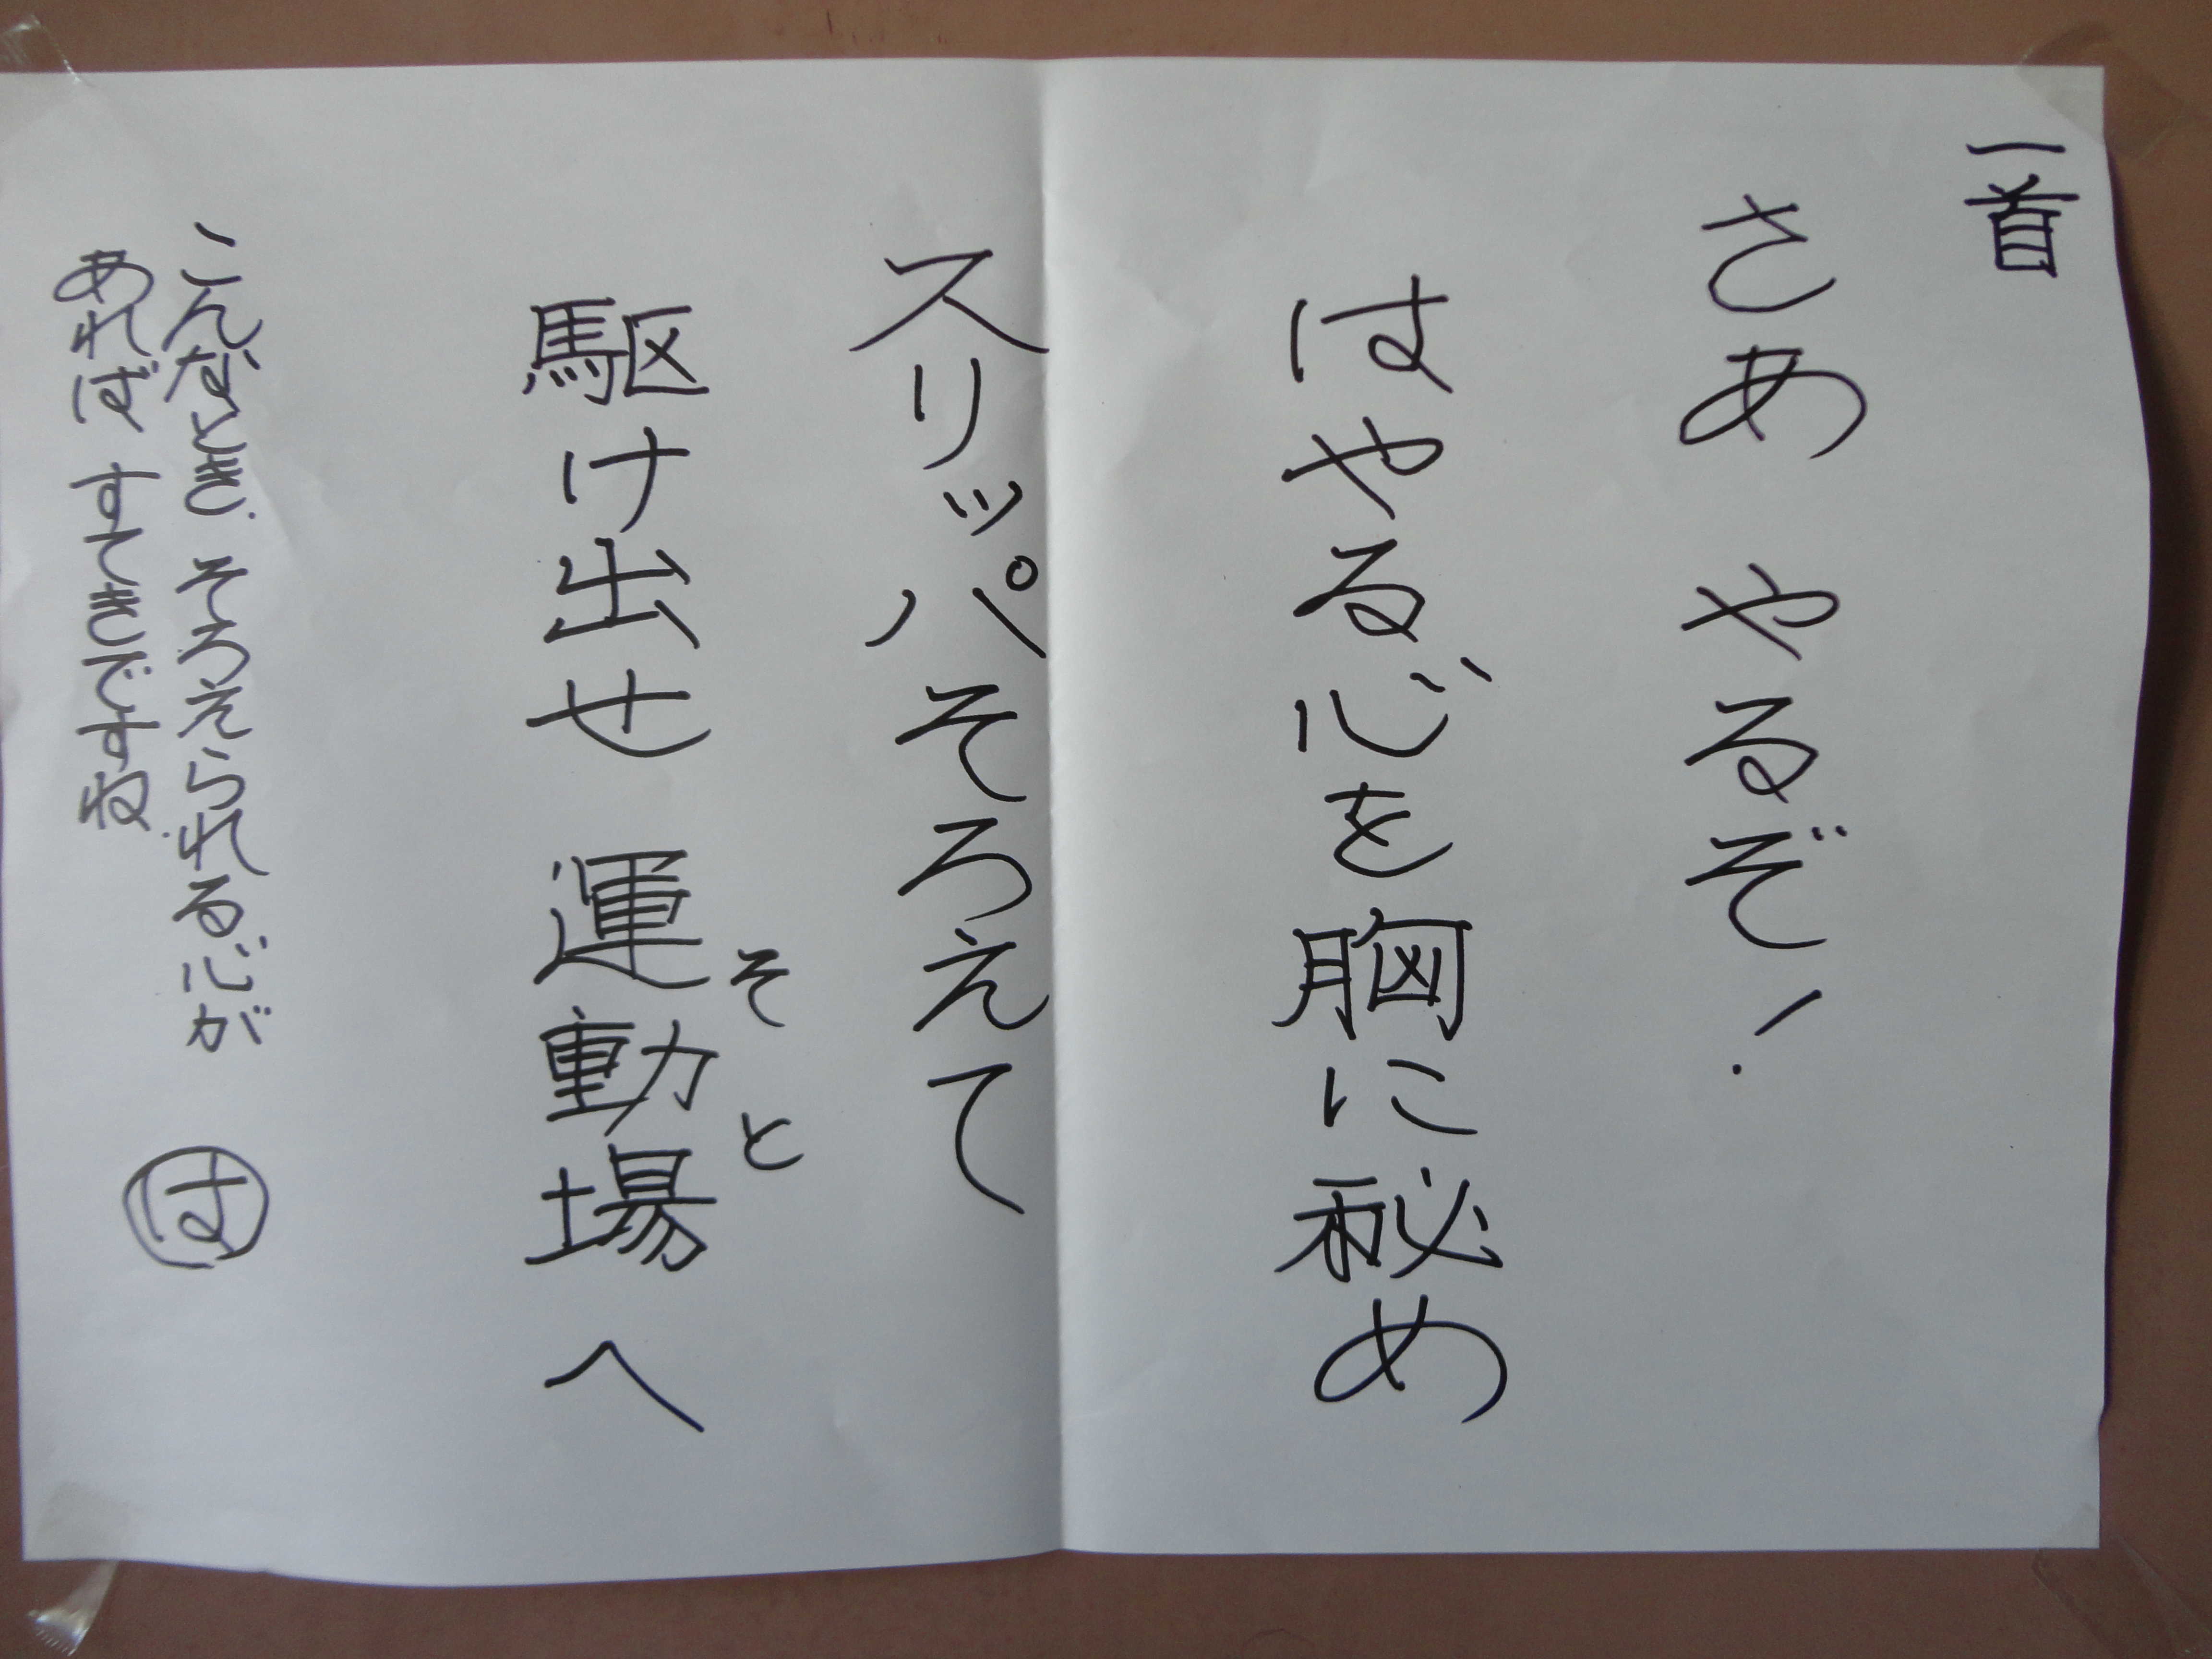 一首
さあ やるぞ！
はやる心を胸に秘め
スリッパそろえて
駆け出せ 運動場へ
そと
こんなとき、そろえられる心が
あれば すてきですね。
は